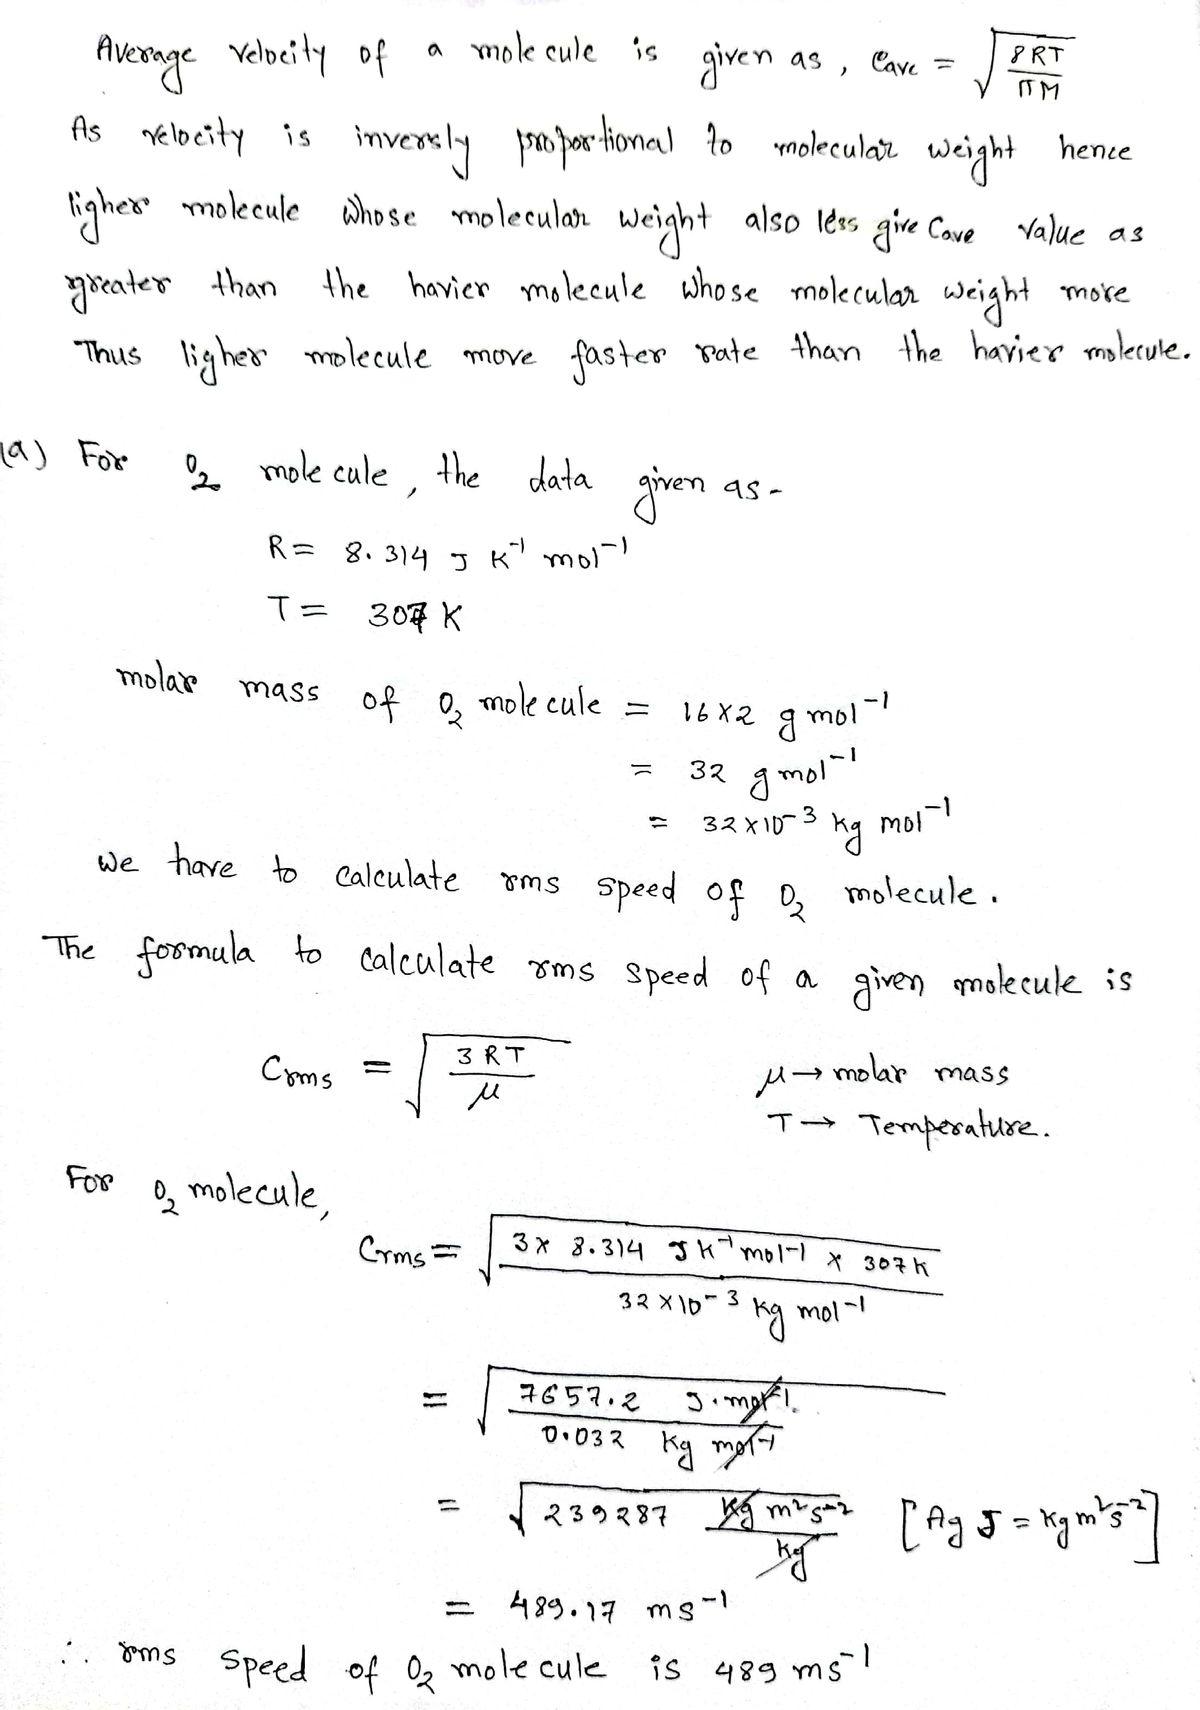 Average velocity of a molecule is given as, Cave = √(8RT/πM)
As velocity is inversly proportional to molecular weight hence
ligher molecule whose molecular weight also less give Cave value as
greater than the havier molecule whose molecular weight more
Thus ligher molecule move faster rate than the havier molecule.
(a) For O₂ molecule, the data given as-
R = 8.314 J K⁻¹ mol⁻¹
T = 307 K
molar mass of O₂ molecule = 16×2 g mol⁻¹
= 32 g mol⁻¹
= 32×10⁻³ kg mol⁻¹
We have to calculate rms speed of O₂ molecule.
The formula to calculate rms speed of a given molecule is
Crms = √(3RT/μ) μ → molar mass
T → Temperature.
For O₂ molecule,
Crms = √(3× 8.314 J K⁻¹ mol⁻¹ × 307K / 32×10⁻³ kg mol⁻¹)
= √(7657.2 J. mol⁻¹. / 0.032 kg mol⁻¹)
= √(239287 kg m²s⁻² / kg) [Ag J = kg m²s⁻²]
= 489.17 ms⁻¹
∴ rms speed of O₂ molecule is 489 ms⁻¹